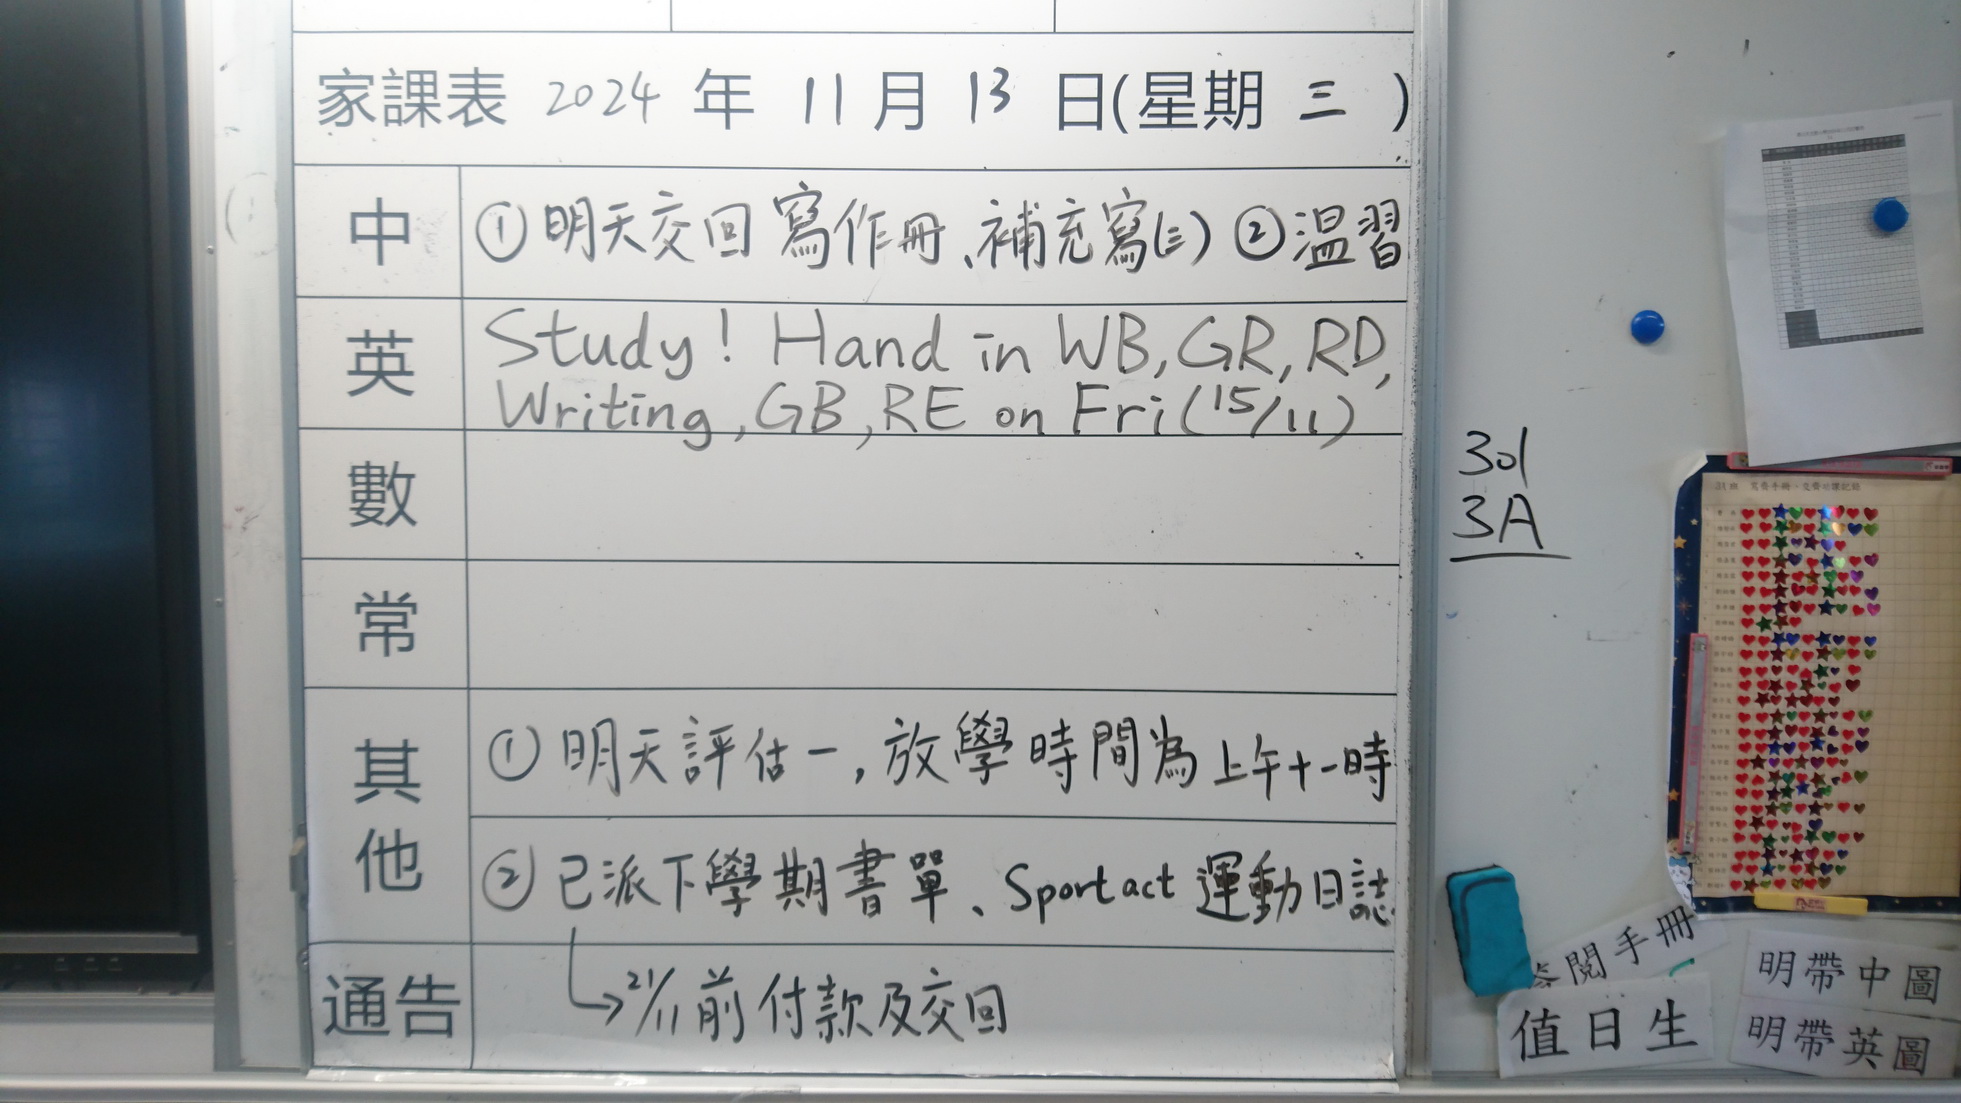 家課表 2024 年 11 月 13 日(星期 三 )
中 ①明天交回寫作冊、補充寫(三) ②温習
英 Study! Hand in WB, GR, RD,
Writing, GB, RE on Fri (15/11)
數
常
其他 ①明天評估一，放學時間為上午十一時
②已派下學期書單、Sportact 運動日誌
通告 →21/11前付款及交回
301
3A
閱手冊
值日生
明帶中圖
明帶英圖